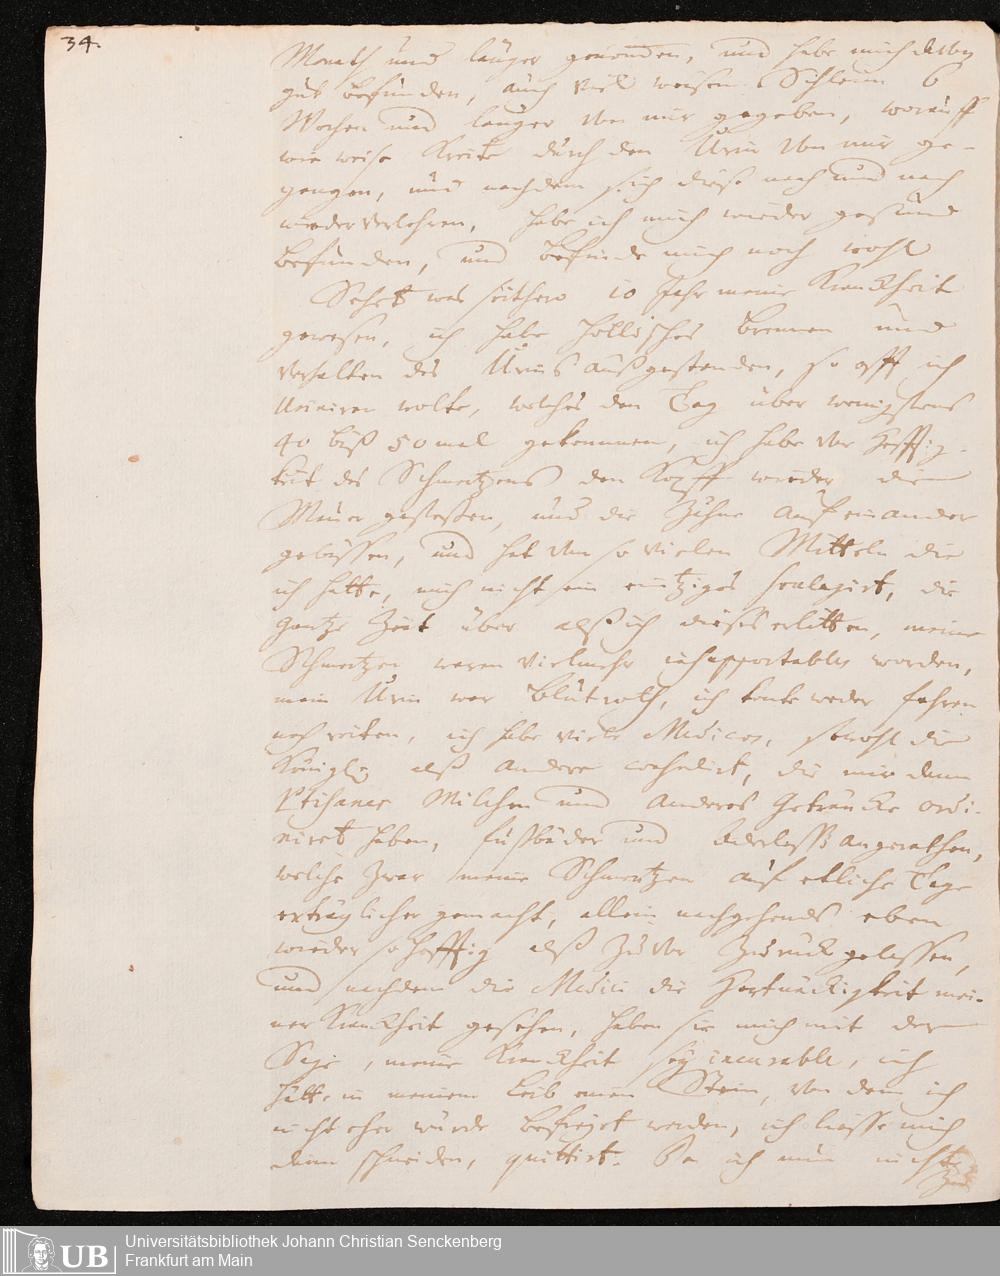 34.
Monath und länger genomen, und habe mich darbey
gut befunden, auch viel weisen Schleim 6
Wochen und länger von mir gegeben, worauff
wie weise Kreite durch den Urin von mir ge-
gangen, und nachdem sich diese nach und nach
wieder verlohren, habe ich mich wieder gesund
befunden, und befinde mich noch wohl
Sehet was seithero 10 Jahr meine Kranckheit
gewesen, ich habe höllisches Brennen und
verhalten des Urins außgestanden, so offt ich
Uriniren wolte, welches den Tag über wenigstens
40 biß 50 mal gekommen, ich habe vor Hefftig-
keit des Schmertzens den Kopff wieder die
Mauer gestoßen, und die Zähne auf einander
gebissen, und hat von so vielen Mitteln die
ich hatte, mich nicht ein eintziges soulagirt, die
gantze Zeit über alß ich dieses erlitten, meine
Schmertzen waren vielmehr insupportables worden,
mein Urin war blutroth, ich konte weder fahren
noch reiten, ich habe viele Medicos, sowohl die
Königl. alß andere consulirt, die mir dann
Ptisanes Milchen und anderes Geträncke ordi-
niret haben, fußbäder und aderlaß angerathen,
welche zwar meine Schmertzen auf etliche Tage
erträglicher gemacht, allein nachgehends eben
wieder so hefftig alß zuvor zurück gelassen,
und nachdem die Medici die Hartnäckigkeit mei-
ner Kranckheit gesehen, haben sie mich mit der
Sage, meine Kranckheit sey incurable, ich
hätte in meinem Leib einen Stein, von dem ich
nicht eher würde befreyet werden, ich liesse mich
dann schneiden, quittirt. Da ich nun nicht
UB
Universitätsbibliothek Johann Christian Senckenberg
Frankfurt am Main